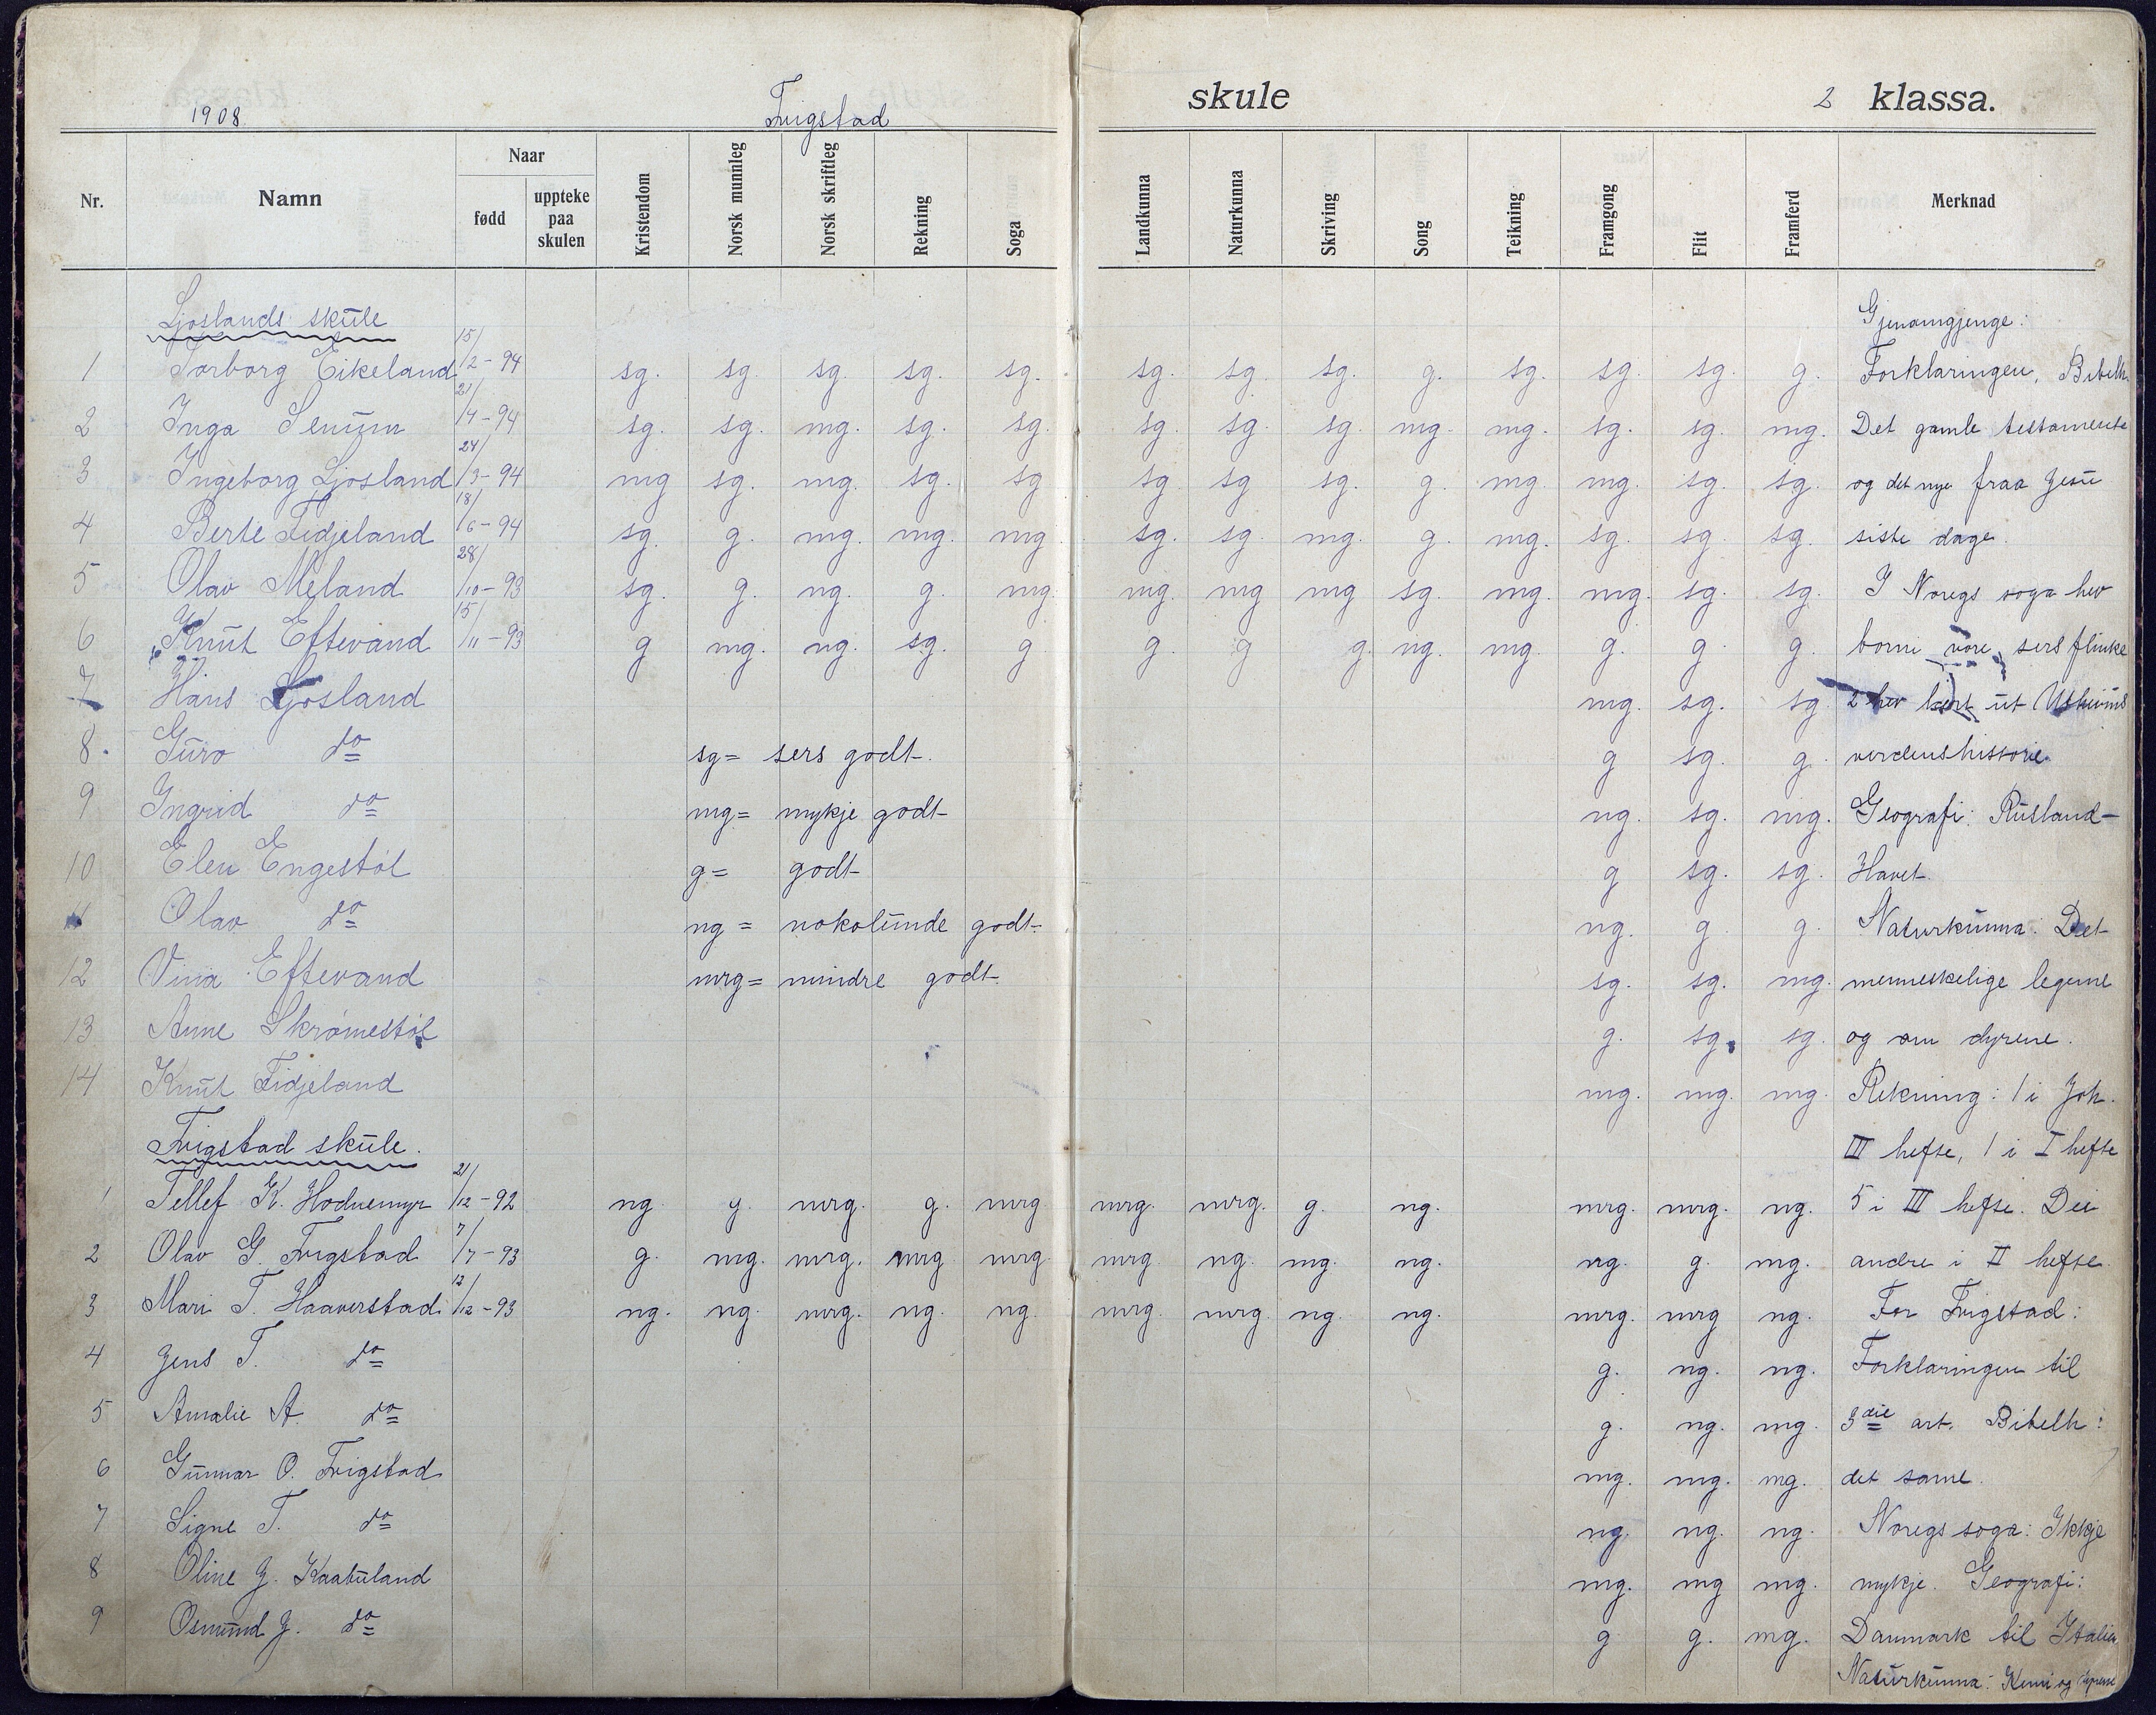 1908 Trigstad skule 2 klassa.
Nr. Namn Naar fødd uppteke paa skulen Kristendom Norsk munnleg Norsk skriftleg Rekning Soga Landkunna Naturkunna Skriving Song Teikning Framgong Flit Framferd Merknad
Ljoslands skule Gjenomgjenge:
1 Torborg Eikeland 15/2-94 sg. sg. sg. sg. sg. sg. sg. sg. g. sg. sg. sg. g. Forklaringen, Bibelh.
2 Inga Senum 21/4-94 sg. sg. mg. sg. sg. sg. sg. sg. mg. mg. sg. sg. mg. Det gamle testamente
3 Ingeborg Ljosland 24/3-94 mg sg. mg. sg. sg sg. sg sg. g. mg. mg. sg. sg. og det nye fraa Jesu
4 Berte Fidjeland 18/6-94 sg. g. mg. mg. mg sg. sg. mg. g. mg. sg. sg. sg. siste dage.
5 Olav Meland 28/10-93 sg. g. ng. g. mg. mg. mg mg sg. mg. mg. sg. sg. I Noregs soga hev
6 Knut Eftevand 15/11-93 g mg. ng. sg. g g. g g. ng. mg. g. g. g. borni vore sers flinke
7 Hans Ljosland mg. sg. sg. 2 hev lært ut Uthiums
8. Guro do g sg. g. verdenshistorie.
sg = sers godt.
9 Ingrid do ng. sg. mg. Geografi: Rusland-
mg = mykje godt
10 Elen Engestøl g sg. sg. Havet.
g = godt
11 Olav do ng. g g. Naturkunna: Det
ng = nokolunde godt.
12 Vina Eftevand sg. sg. mg. menneskelige legeme
mrg = mindre godt.
13 Anne Skrømestøl g. sg. sg. og om dyrene.
14 Knut Fidjeland mg. mg. mg. Rekning: 1 i Joh.
Trigstad skule. III hefte, 1 i I hefte
1 Tellef K. Hodnemyr 21/12-92 ng. g. mrg. g. mrg mrg. mrg. g. ng. mrg. mrg. ng. 5 i III hefte. Dei
2 Olav G. Trigstad 7/7-93 g. mg. mrg. mrg mrg mrg ng. mg. ng. ng. g. mg. andre i II hefte.
3 Mari T. Haaverstad 12/12-93 ng. ng. mrg. ng. ng. mrg. mrg. ng. ng. mrg. mrg ng. For Trigstad:
4 Jens T. do g. ng. ng. Forklaringen til
5 Amalie A. do g. ng. mg. 3die art. Bibelh:
6 Gunnar O. Trigstad mg. mg. mg. det same.
7 Signe T. do ng. ng. ng. Noregs soga: Ikkje
8 Oline J. Kaabuland mg. mg mg. mykje. Geografi:
9 Osmund J. do g g. mg. Danmark til Italien
Naturkunna: Kemi og dyrene